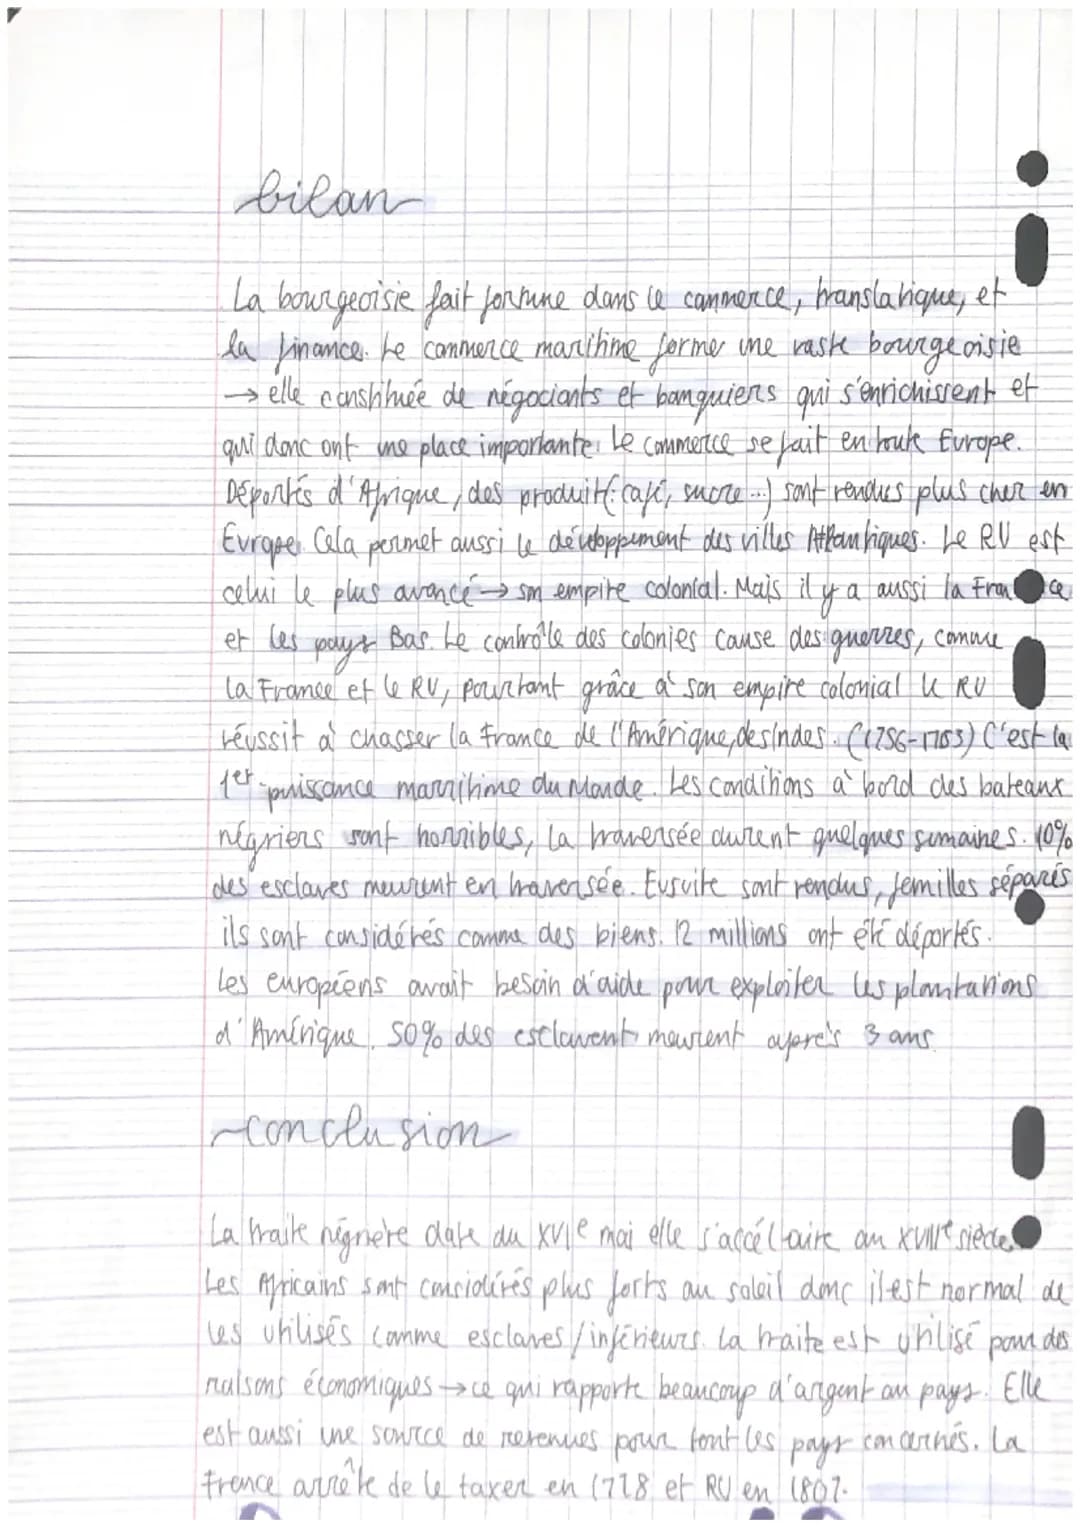 bilan
La bourgeoisie fait fortune dans le commerce, translatique, et
la finance. Le commerce maritime forme une vaste bourgeoisie
→ elle constituée de négociants et banquiers qui s'enrichissent et
qui donc ont une place importante. Le commerce se fait en toute Europe.
Déportés d'Afrique, des produit (: café, sucre...) sont vendues plus cher en
Europe. Cela permet aussi le développement des villes Atlantiques. Le RU est
celui le plus avancé → son empire colonial. Mais il y a aussi la France
et les pays Bas. Le contrôle des colonies cause des guerres, comme
la France et le RU, pourtant grâce à son empire colonial le RU
réussit à chasser la France de l'Amérique, des indes. ((1756-1763) C'est la
1er puissance marritime du Monde. Les conditions à bord des bateaux
négriers sont horribles, la traversée durent quelques semaines. 10%
des esclaves meurent en traversée. Ensuite sont vendus, familles séparés
ils sont considérés comme des biens. 12 millions ont été déportés.
Les européens avait besoin d'aide pour exploiter les plantations
d'Amérique. 50% des esclavent meurent après 3 ans
conclusion
La traite négrière date du XVIe mai elle s'accél aire au XVIIIe siècle.
Les Africains sont considérés plus forts au soleil donc il est normal de
les utilisés comme esclaves/inférieurs. La traite est utilisé pour des
raisons économiques → ce qui rapporte beaucoup d'argent au pays. Elle
est aussi une source de revenues pour tout les pays concernés. La
France arrête de le taxer en 1728 et RU en 1807.